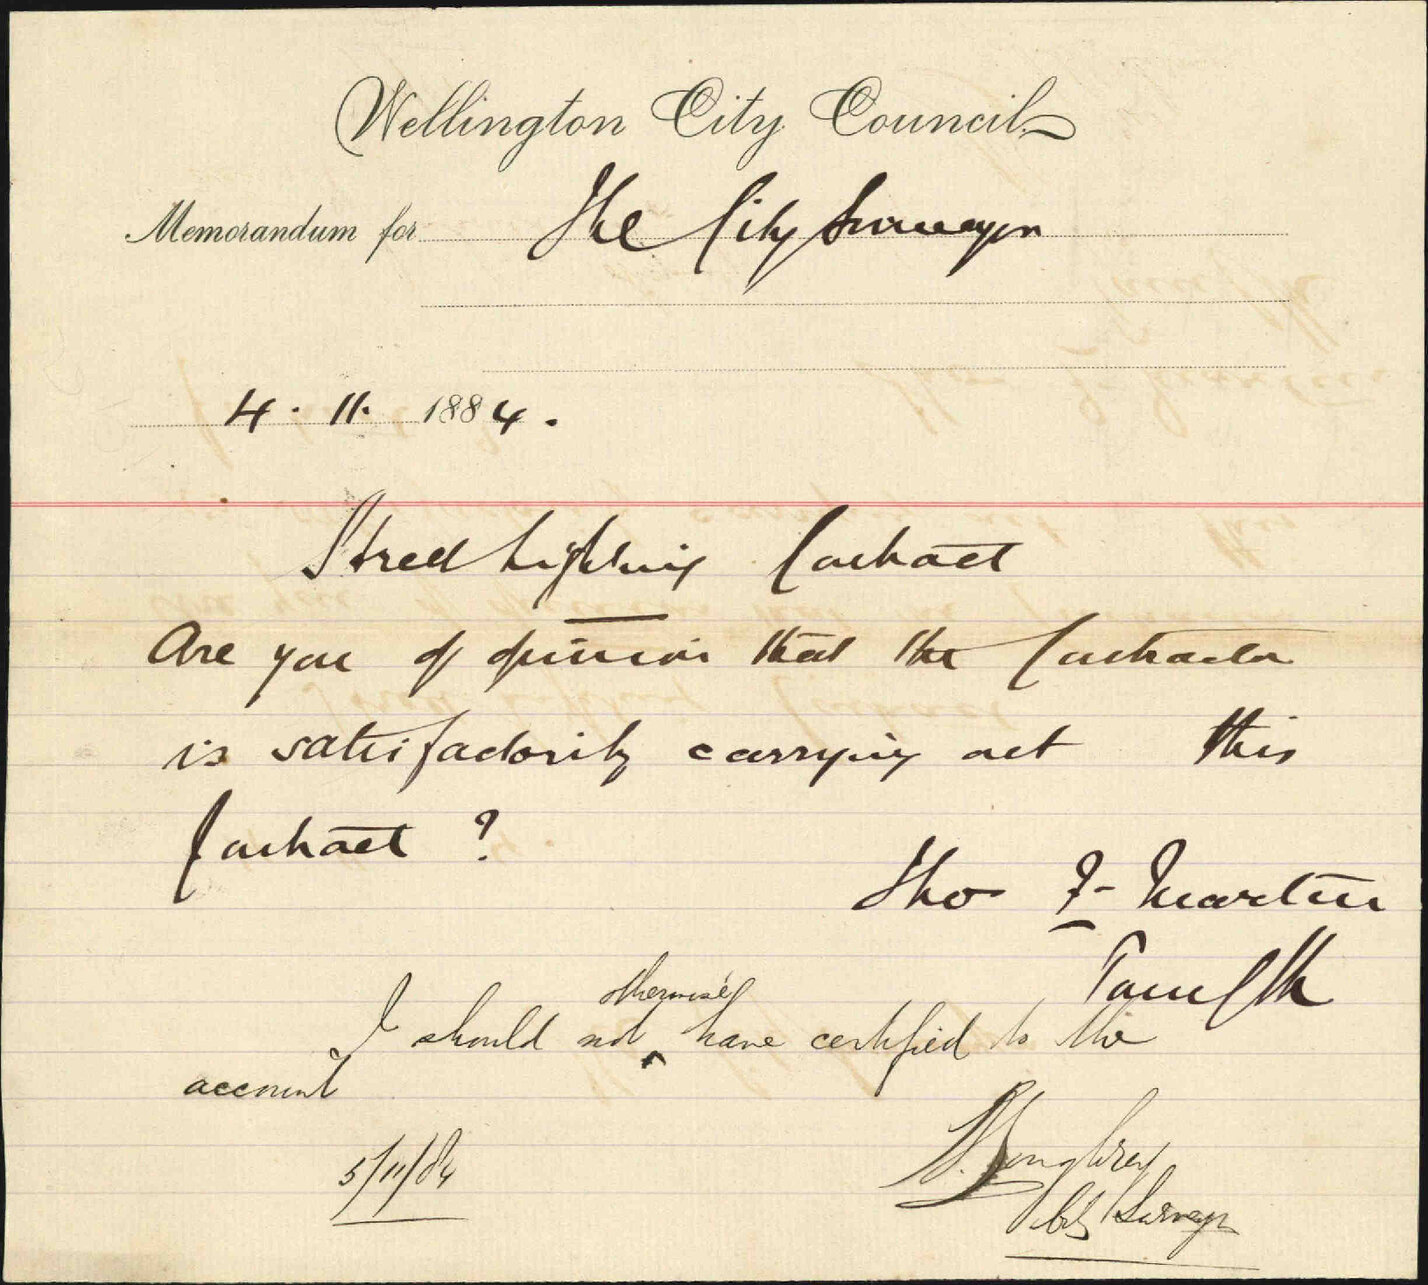 Wellington City Council
Memorandum for The City Surveyor
4. 11. 1884.
Street Lighting Contract
Are you of opinion that the Contractor
is satisfactorily carrying out this
Contract ?
Tho F Martin
Town Clk
otherwise
I should not ^ have certified to the
account
5/11/84
City Surveyor